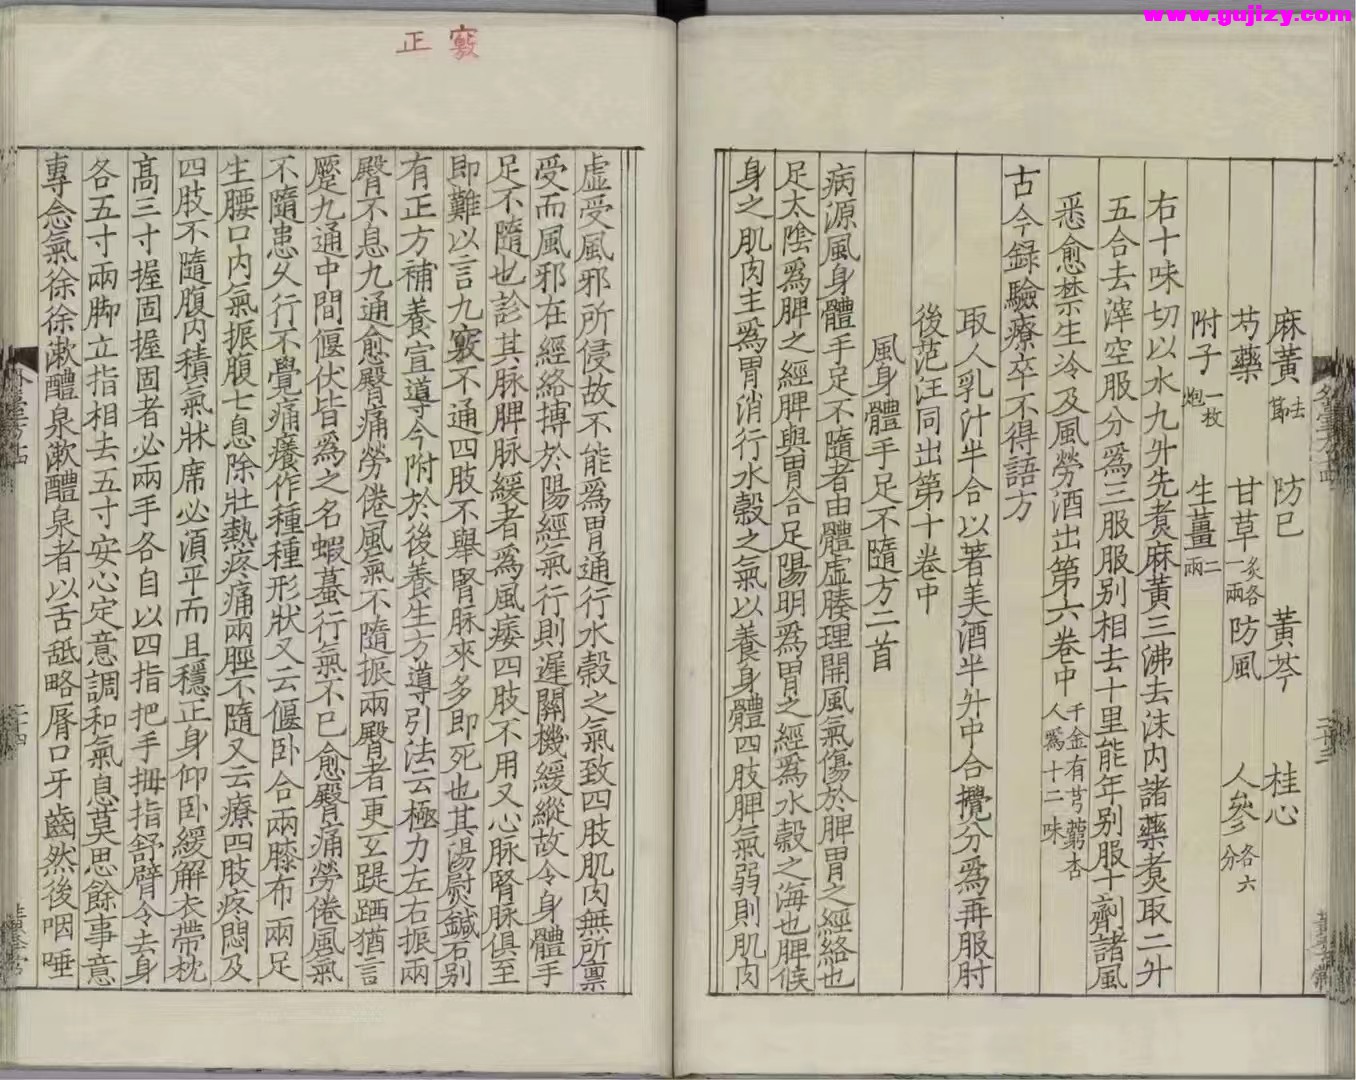 www.gujizy.com
麻黃去節 防已 黃芩 桂心
芍藥 甘草炙各一兩 防風 人參各六分
附子一枚炮 生薑二兩
右十味切以水九升先煑麻黃三沸去沫內諸藥煑取二升
五合去滓空服分爲三服服別相去十里能年別服十劑諸風
悉愈禁生冷及風勞酒出第六卷中千金有芎藭杏人爲十二味
古今録驗療卒不得語方
取人乳汁半合以著美酒半升中合攪分爲再服肘
後范汪同出第十卷中
風身體手足不隨方二首
病源風身體手足不隨者由體虛腠理開風氣傷於脾胃之經絡也
足太陰爲脾之經脾與胃合足陽明爲胃之經爲水穀之海也脾候
身之肌肉主爲胃消行水穀之氣以養身體四肢脾氣弱則肌肉
正竅
虛受風邪所侵故不能爲胃通行水穀之氣致四肢肌肉無所禀
受而風邪在經絡搏於陽經氣行則遲關機緩縱故令身體手
足不隨也診其脉脾脉緩者爲風痿四肢不用又心脉腎脉俱至
即難以言九竅不通四肢不舉腎脉來多即死也其湯熨鍼石別
有正方補養宣導今附於後養生方導引法云極力左右振兩
臀不息九通愈臀痛勞倦風氣不隨振兩臀者更互踶踊猶言
蹷九通中間偃伏皆爲之名蝦蟇行氣不已愈臀痛勞倦風氣
不隨患久行不覺痛癢作種種形狀又云偃卧合兩膝布兩足
生腰口內氣振腹七息除壯熱疼痛兩脛不隨又云療四肢疼悶及
四肢不隨腹內積氣牀席必須平而且穩正身仰卧緩解衣帶枕
高三寸握固握固者必兩手各自以四指把手拇指舒臂令去身
各五寸兩脚立指相去五寸安心定意調和氣息莫思餘事意
專念氣徐徐漱醴泉漱醴泉者以舌舐略脣口牙齒然後咽唾